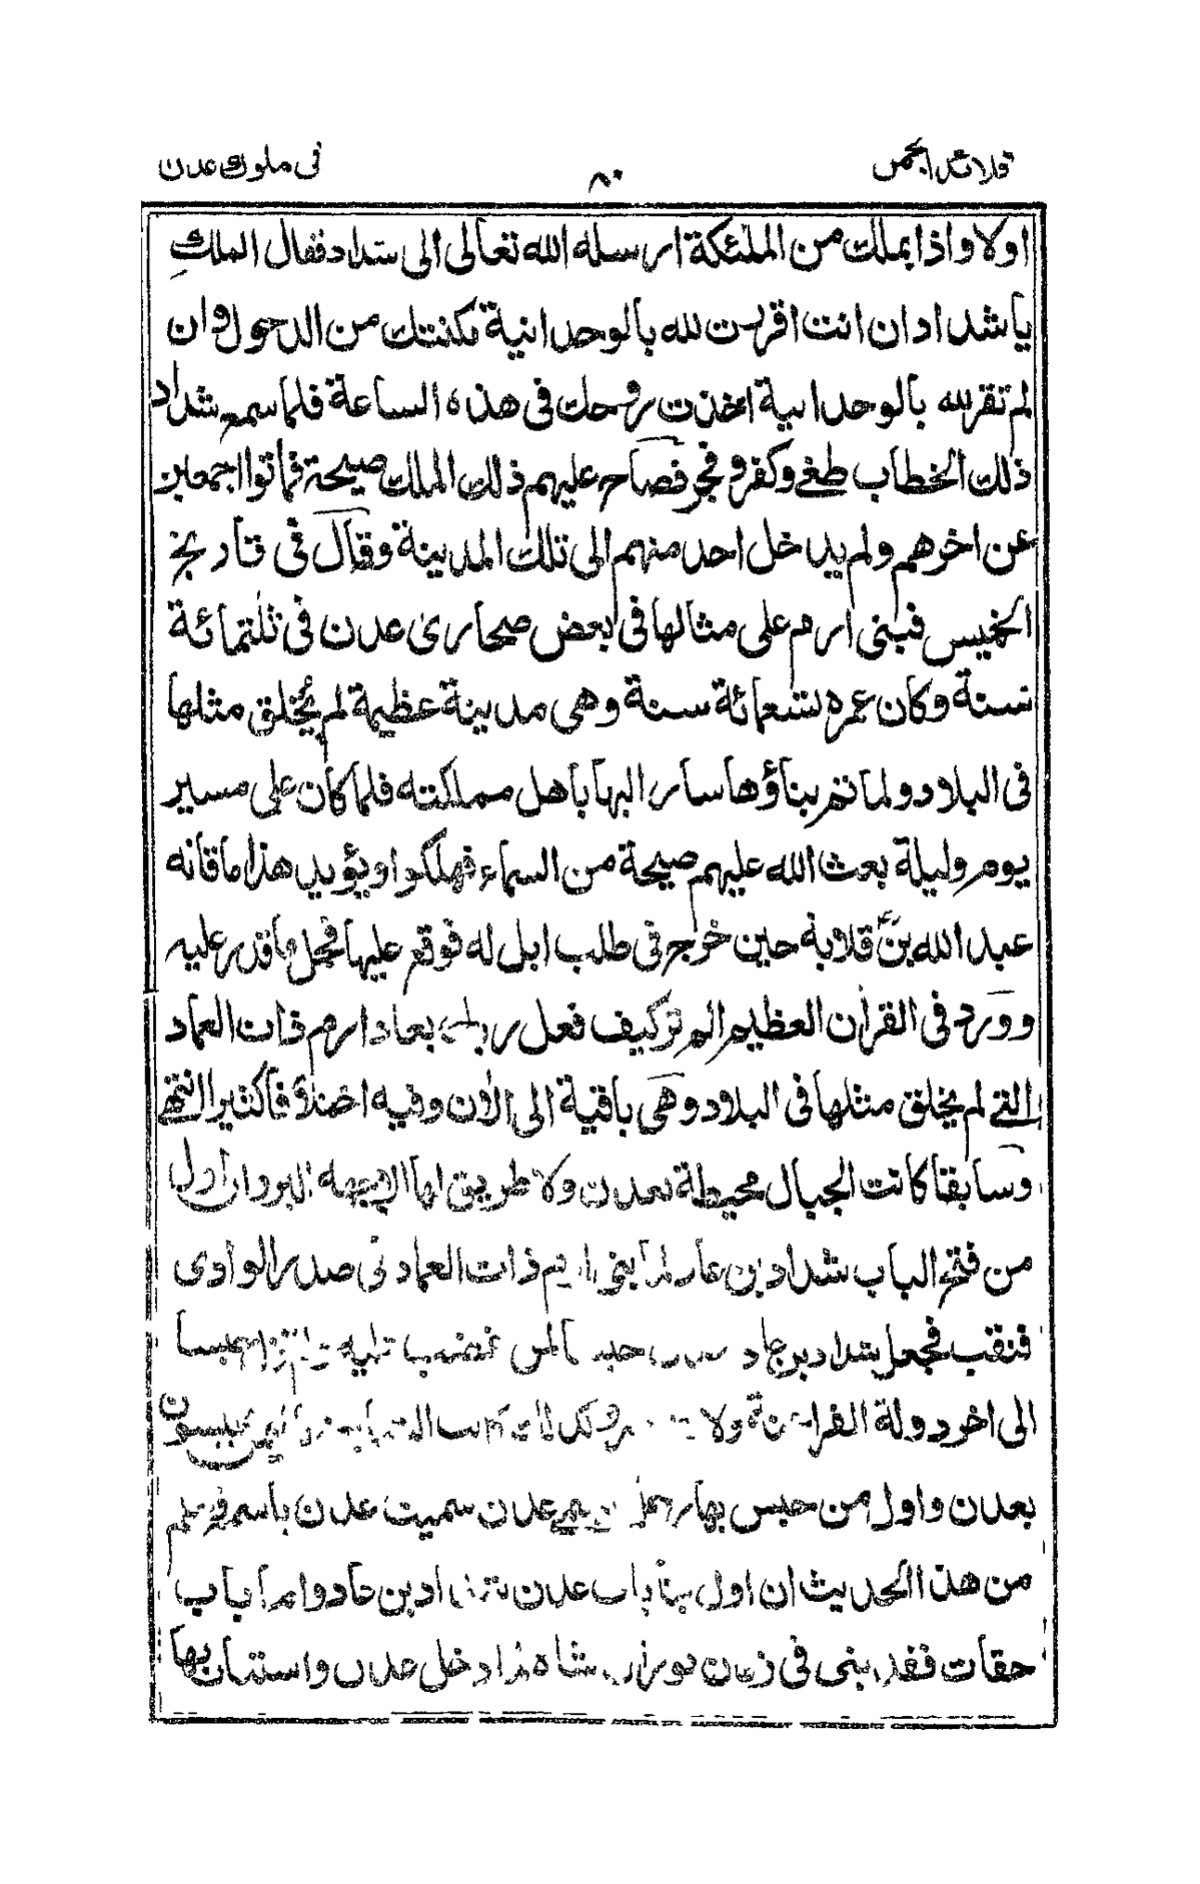 قلائد الجمن ٨٠ فى ملوك عدن
اولا واذا بملك من الملئكة ارسله الله تعالى الى شداد فقال الملك
ياشداد ان انت اقررت لله بالوحدانية مكنتك من الدحول وان
لم تقر لله بالوحدانية اخذت روحك فى هذه الساعة فلما سمع شداد
ذلك الخطاب طغى وكفر وفجر فصاح عليهم ذلك الملك صيحة فماتوا اجمعين
عن اخرهم ولم يدخل احد منهم الى تلك المدينة وقال فى تاريخ
الخميس فبنى ارم على مثالها فى بعض صحارى عدن فى ثلثمائة
سنة وكان عمره تسعمائة سنة وهى مدينة عظيمة لم يُخلق مثلها
فى البلاد ولما تم بناؤها سار اليها باهل مملكته فلما كان على مسير
يوم وليلة بعث الله عليهم صيحة من السماء فهلكوا ويؤيد هذا ما قاله
عبد الله بن قلابة حين خرج فى طلب ابل له فوقع عليها فحمل ما قدر عليه
وورد فى القران العظيم الم تر كيف فعل ربك بعاد ارم ذات العماد
التى لم يخلق مثلها فى البلاد وهى باقية الى الان وفيه اختلافا كثيرا انتهى
وسابقا كانت الجبال محيطة بعدن ولا طريق لها الا جهة البر وان اول
من فتح الباب شداد بن عاد لما بنى ارم ذات العماد فى صدر الوادى
فنقب فجعل شداد بن عاد حبسا
الى اخر دولة الفراعنة
بعدن واول من حبس بها رجل عدن سميت عدن باسمه فعلم
من هذا الحديث ان اول بنا باب عدن شداد بن عاد واما باب
حقات فقد بنى فى زمان شاه لما دخل عدن واستان بها